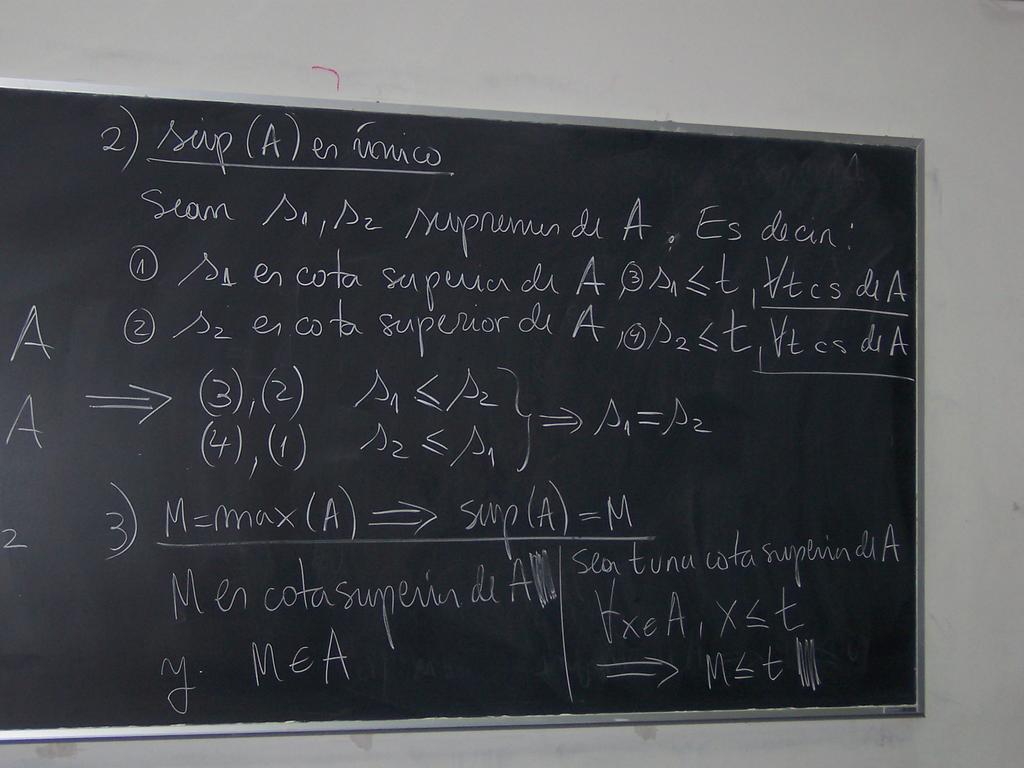 2) sup(A) es único
Sean s₁, s₂ supremos de A. Es decir:
① s₁ es cota superior de A ③ s₁ ≤ t, ∀t cs de A
② s₂ es cota superior de A, ④ s₂ ≤ t, ∀t cs de A
A
⟹ (3), (2) s₁ ≤ s₂
A
(4), (1) s₂ ≤ s₁ } ⟹ s₁ = s₂
3) M = max(A) ⟹ sup(A) = M
2
M es cota superior de A
y M ∈ A
sea t una cota superior de A
∀x ∈ A, x ≤ t
⟹ M ≤ t